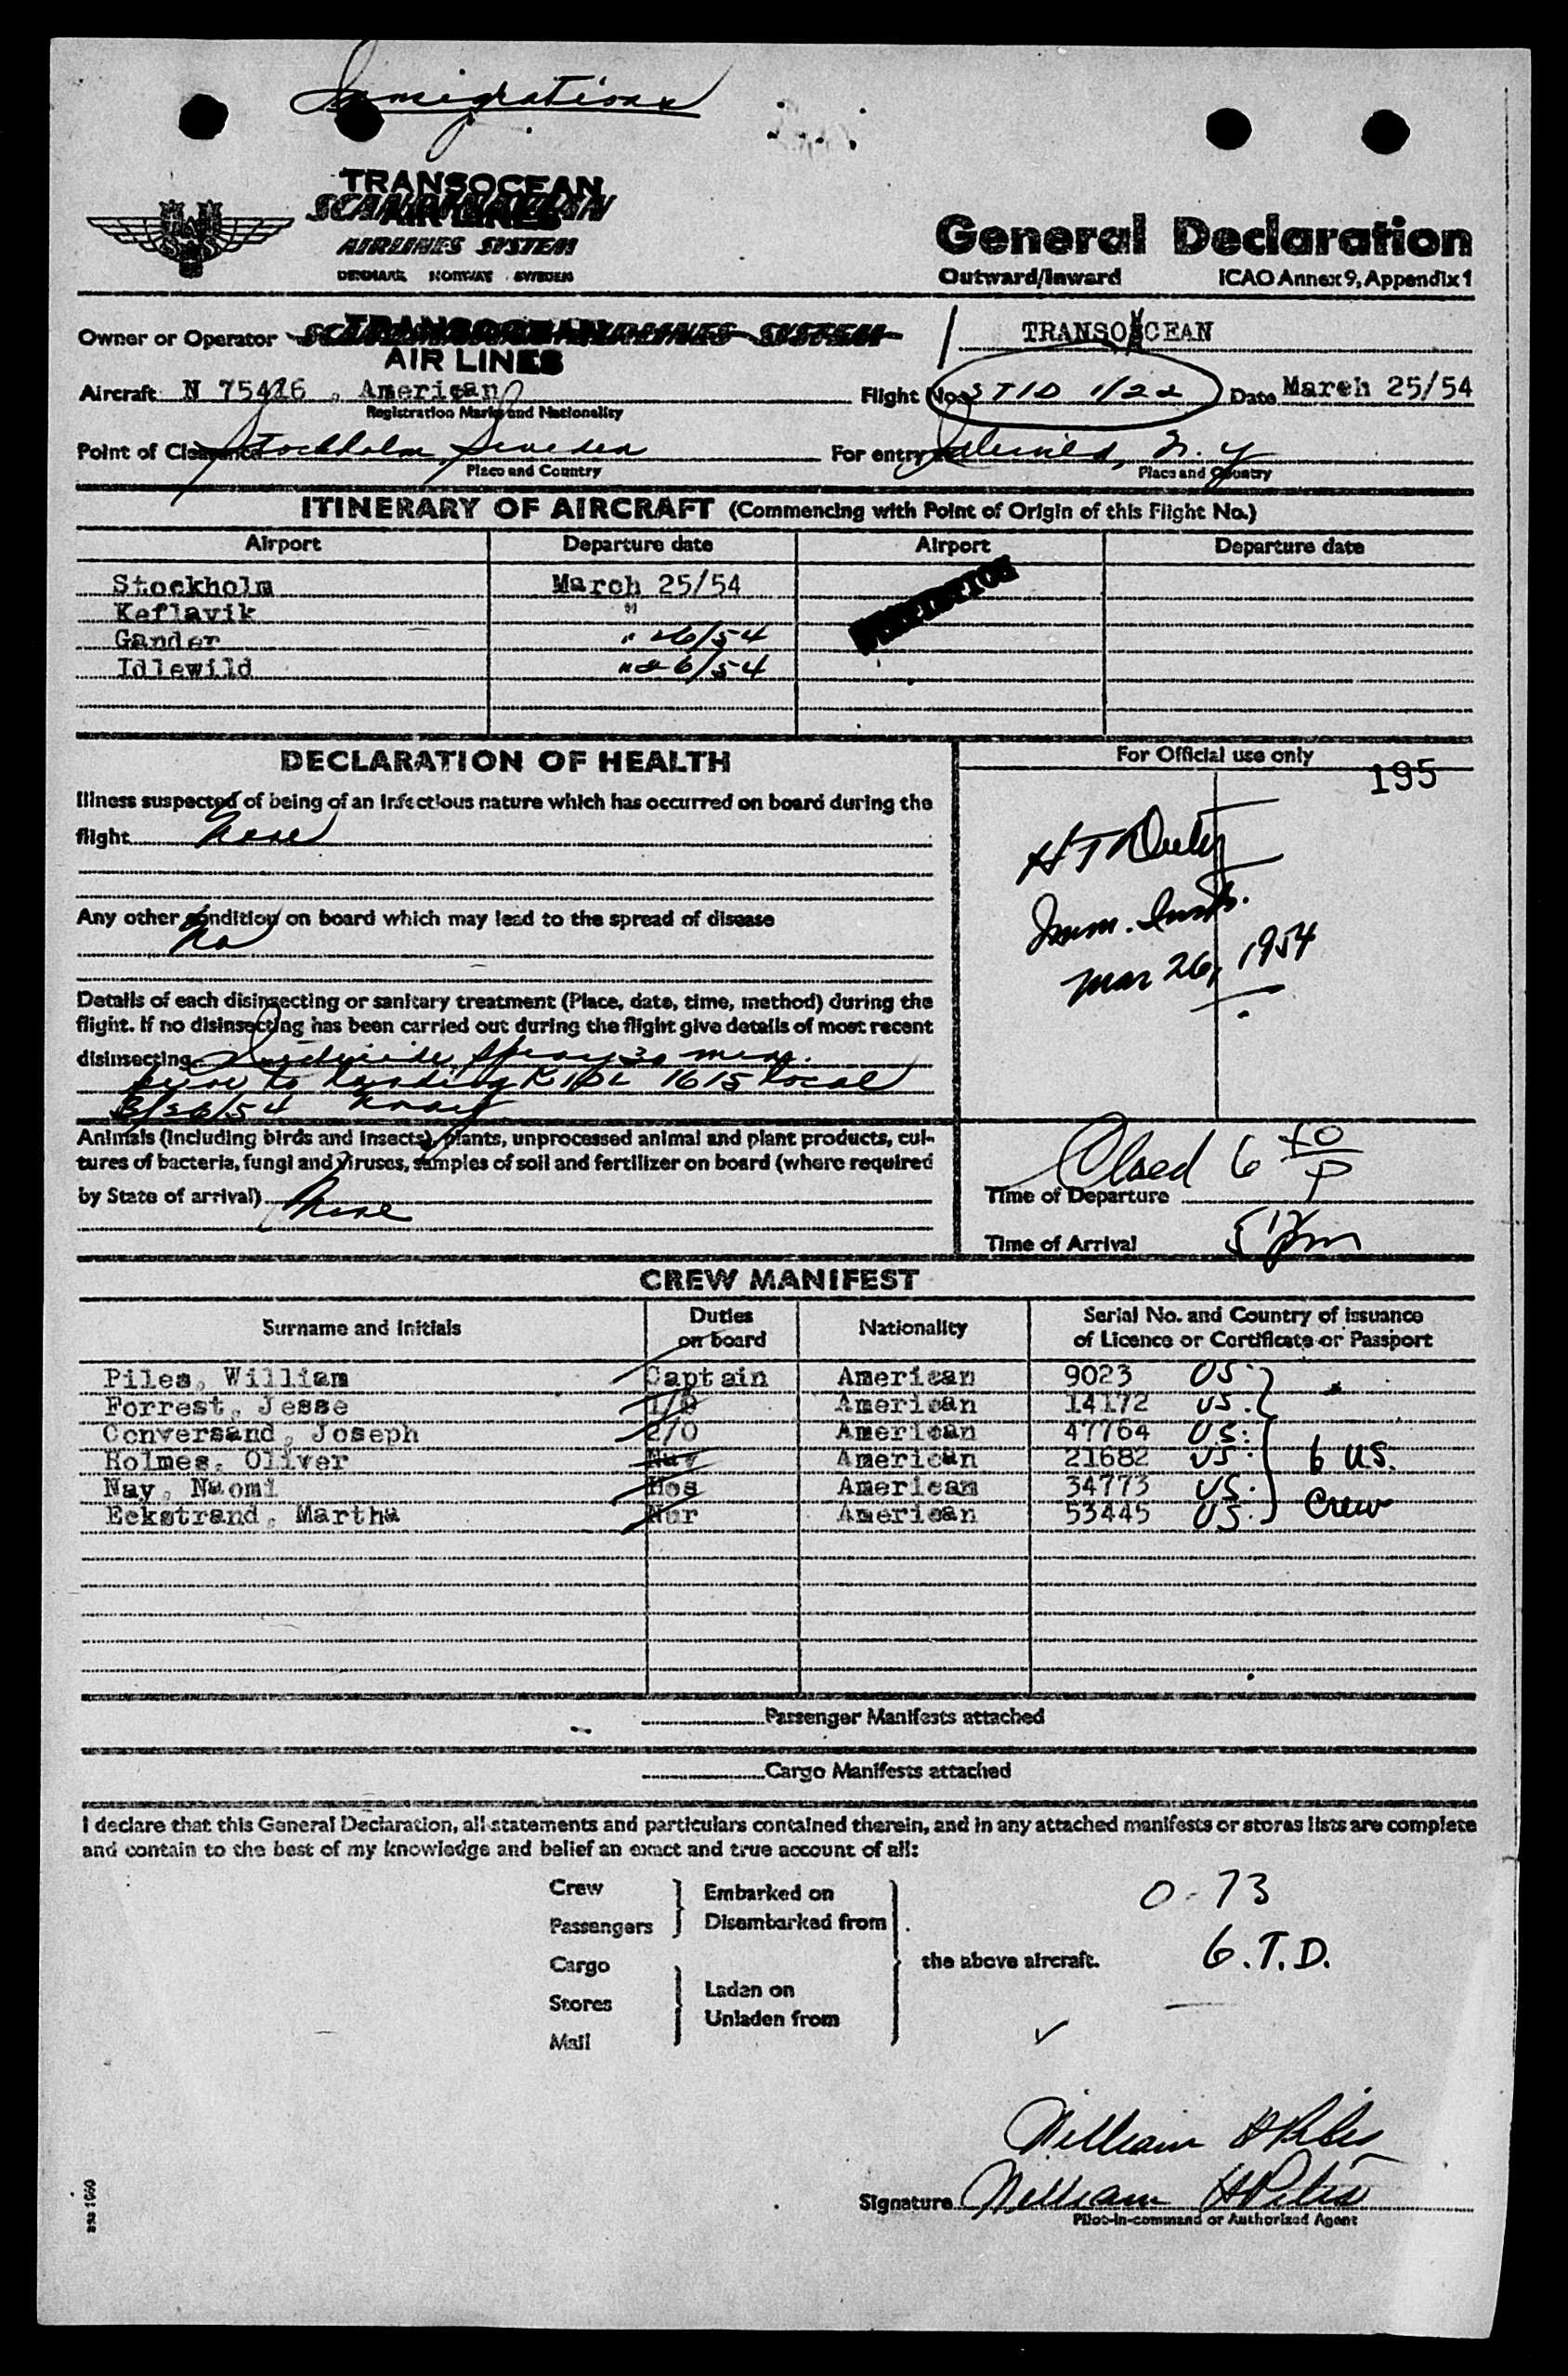 Immigration
TRANSOCEAN
AIR LINES
SCANDINAVIAN
AIRLINES SYSTEM
DENMARK NORWAY SWEDEN
General Declaration
Outward/Inward ICAO Annex 9, Appendix 1
Owner or Operator SCANDINAVIAN AIRLINES SYSTEM / TRANSOCEAN
TRANSOCEAN
AIR LINES
Aircraft N 75416, American Flight No. STID 1/22 Date March 25/54
Registration Marks and Nationality
Point of Clearance Stockholm, Sweden For entry Idlewild, N. Y
Place and Country Place and Country
ITINERARY OF AIRCRAFT (Commencing with Point of Origin of this Flight No.)
Airport Departure date Airport Departure date
Stockholm March 25/54
Keflavik "
Gander " 26/54
Idlewild " 26/54
DECLARATION OF HEALTH For Official use only
195
Illness suspected of being of an infectious nature which has occurred on board during the
flight None
Any other condition on board which may lead to the spread of disease
No
Imm. Insp.
Mar 26, 1954
Details of each disinsecting or sanitary treatment (Place, date, time, method) during the
flight. If no disinsecting has been carried out during the flight give details of most recent
disinsecting Insecticide spray 30 mins.
prior to landing KIDL 1615 local
3/26/54
Animals (including birds and insects), plants, unprocessed animal and plant products, cul-
tures of bacteria, fungi and viruses, samples of soil and fertilizer on board (where required
by State of arrival) None
Closed 6 40 P
Time of Departure
Time of Arrival 5 12 pm
CREW MANIFEST
Surname and Initials Duties on board Nationality Serial No. and Country of issuance of Licence or Certificate or Passport
Piles, William Captain American 9023 US
Forrest, Jesse 1/O American 14172 US.
Conversand, Joseph 2/O American 47764 US.
Holmes, Oliver Nav American 21682 US 6 US.
Nay, Naomi Hos American 34773 US. Crew
Eckstrand, Martha Nur American 53445 US.
Passenger Manifests attached
Cargo Manifests attached
I declare that this General Declaration, all statements and particulars contained therein, and in any attached manifests or stores lists are complete
and contain to the best of my knowledge and belief an exact and true account of all:
Crew Embarked on
Passengers Disembarked from
Cargo the above aircraft.
Stores Laden on
Mail Unladen from
0-73
6.T.D.
William H Piles
Signature William H Piles
Pilot-in-command or Authorized Agent